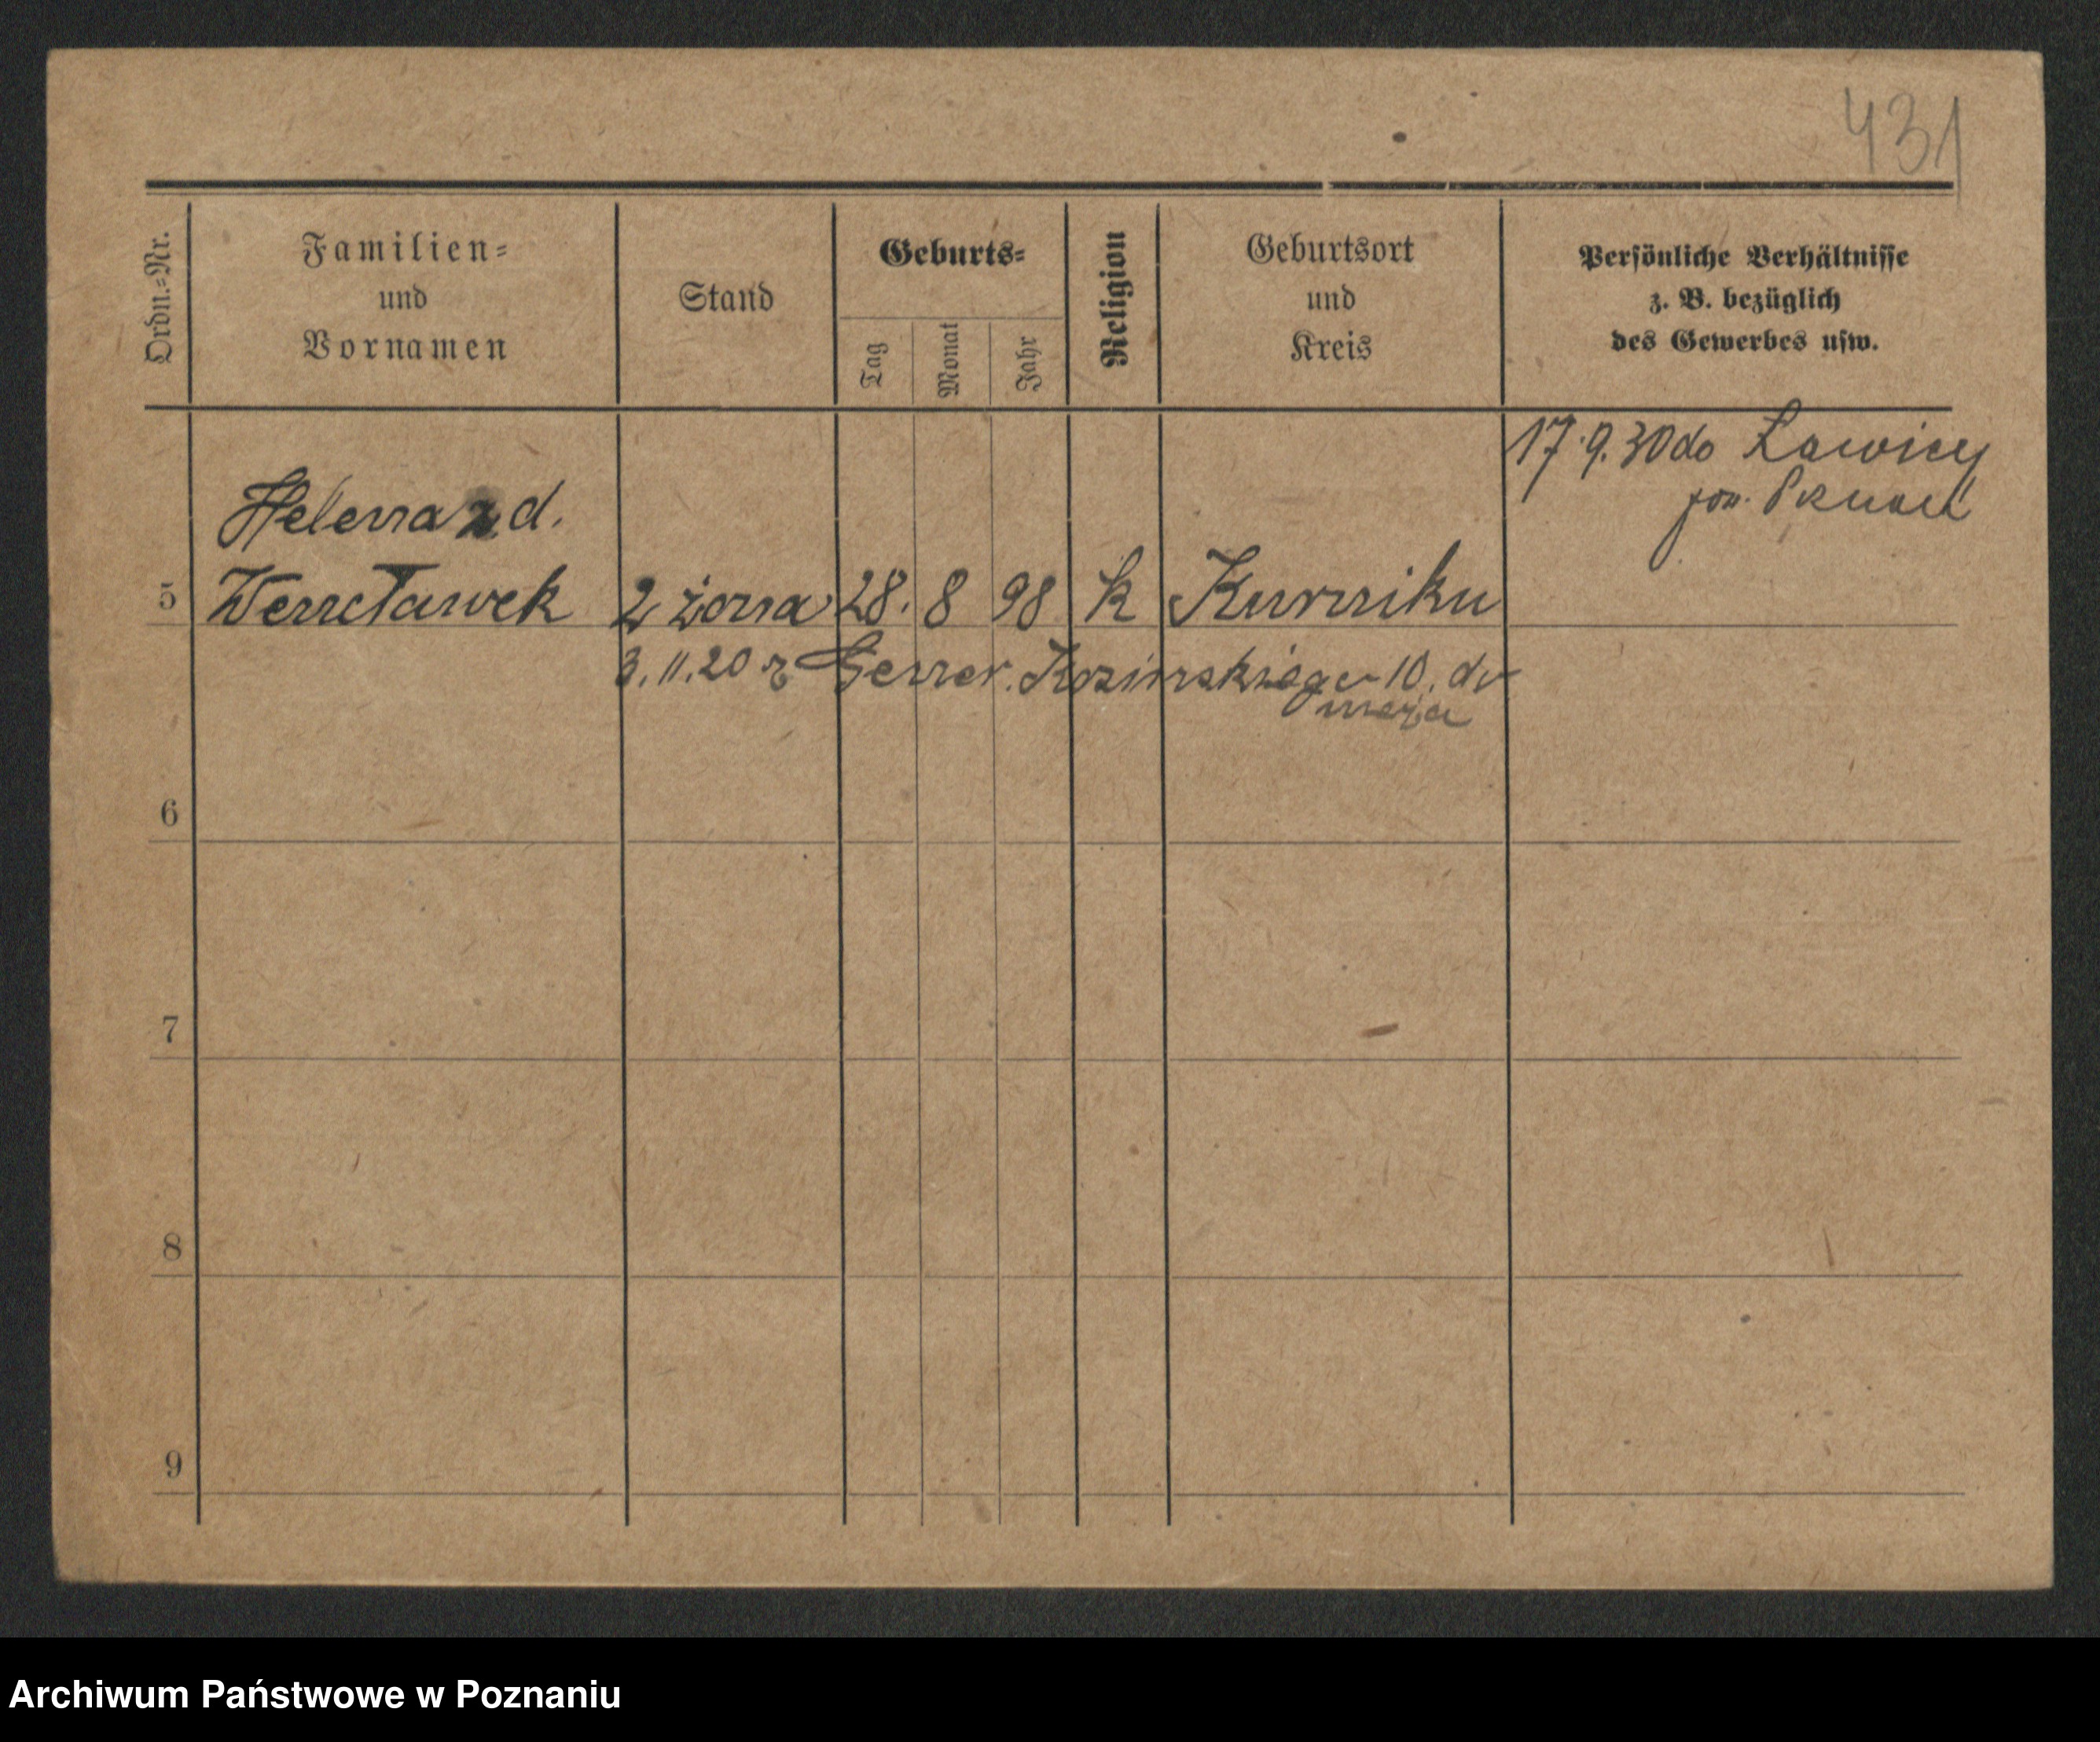 431
Ordn.=Nr.
Familien=
und
Vornamen
Stand
Geburts=
Tag
Monat
Jahr
Religion
Geburtsort
und
Kreis
Persönliche Verhältnisse
z. B. bezüglich
des Gewerbes usw.
17.9.30 do Ławicy
pow.
Helena z d.
5 Wencławek 2 żona 28. 8 98 k Kurniku
3.11.20 z Gener. Kosinskiego 10. do
męża
6
7
8
9
Archiwum Państwowe w Poznaniu